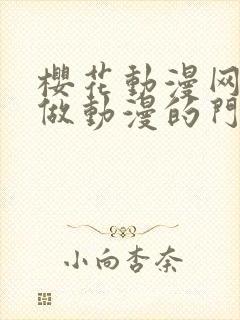 櫻花動漫网
做動漫的門
小向杏奈